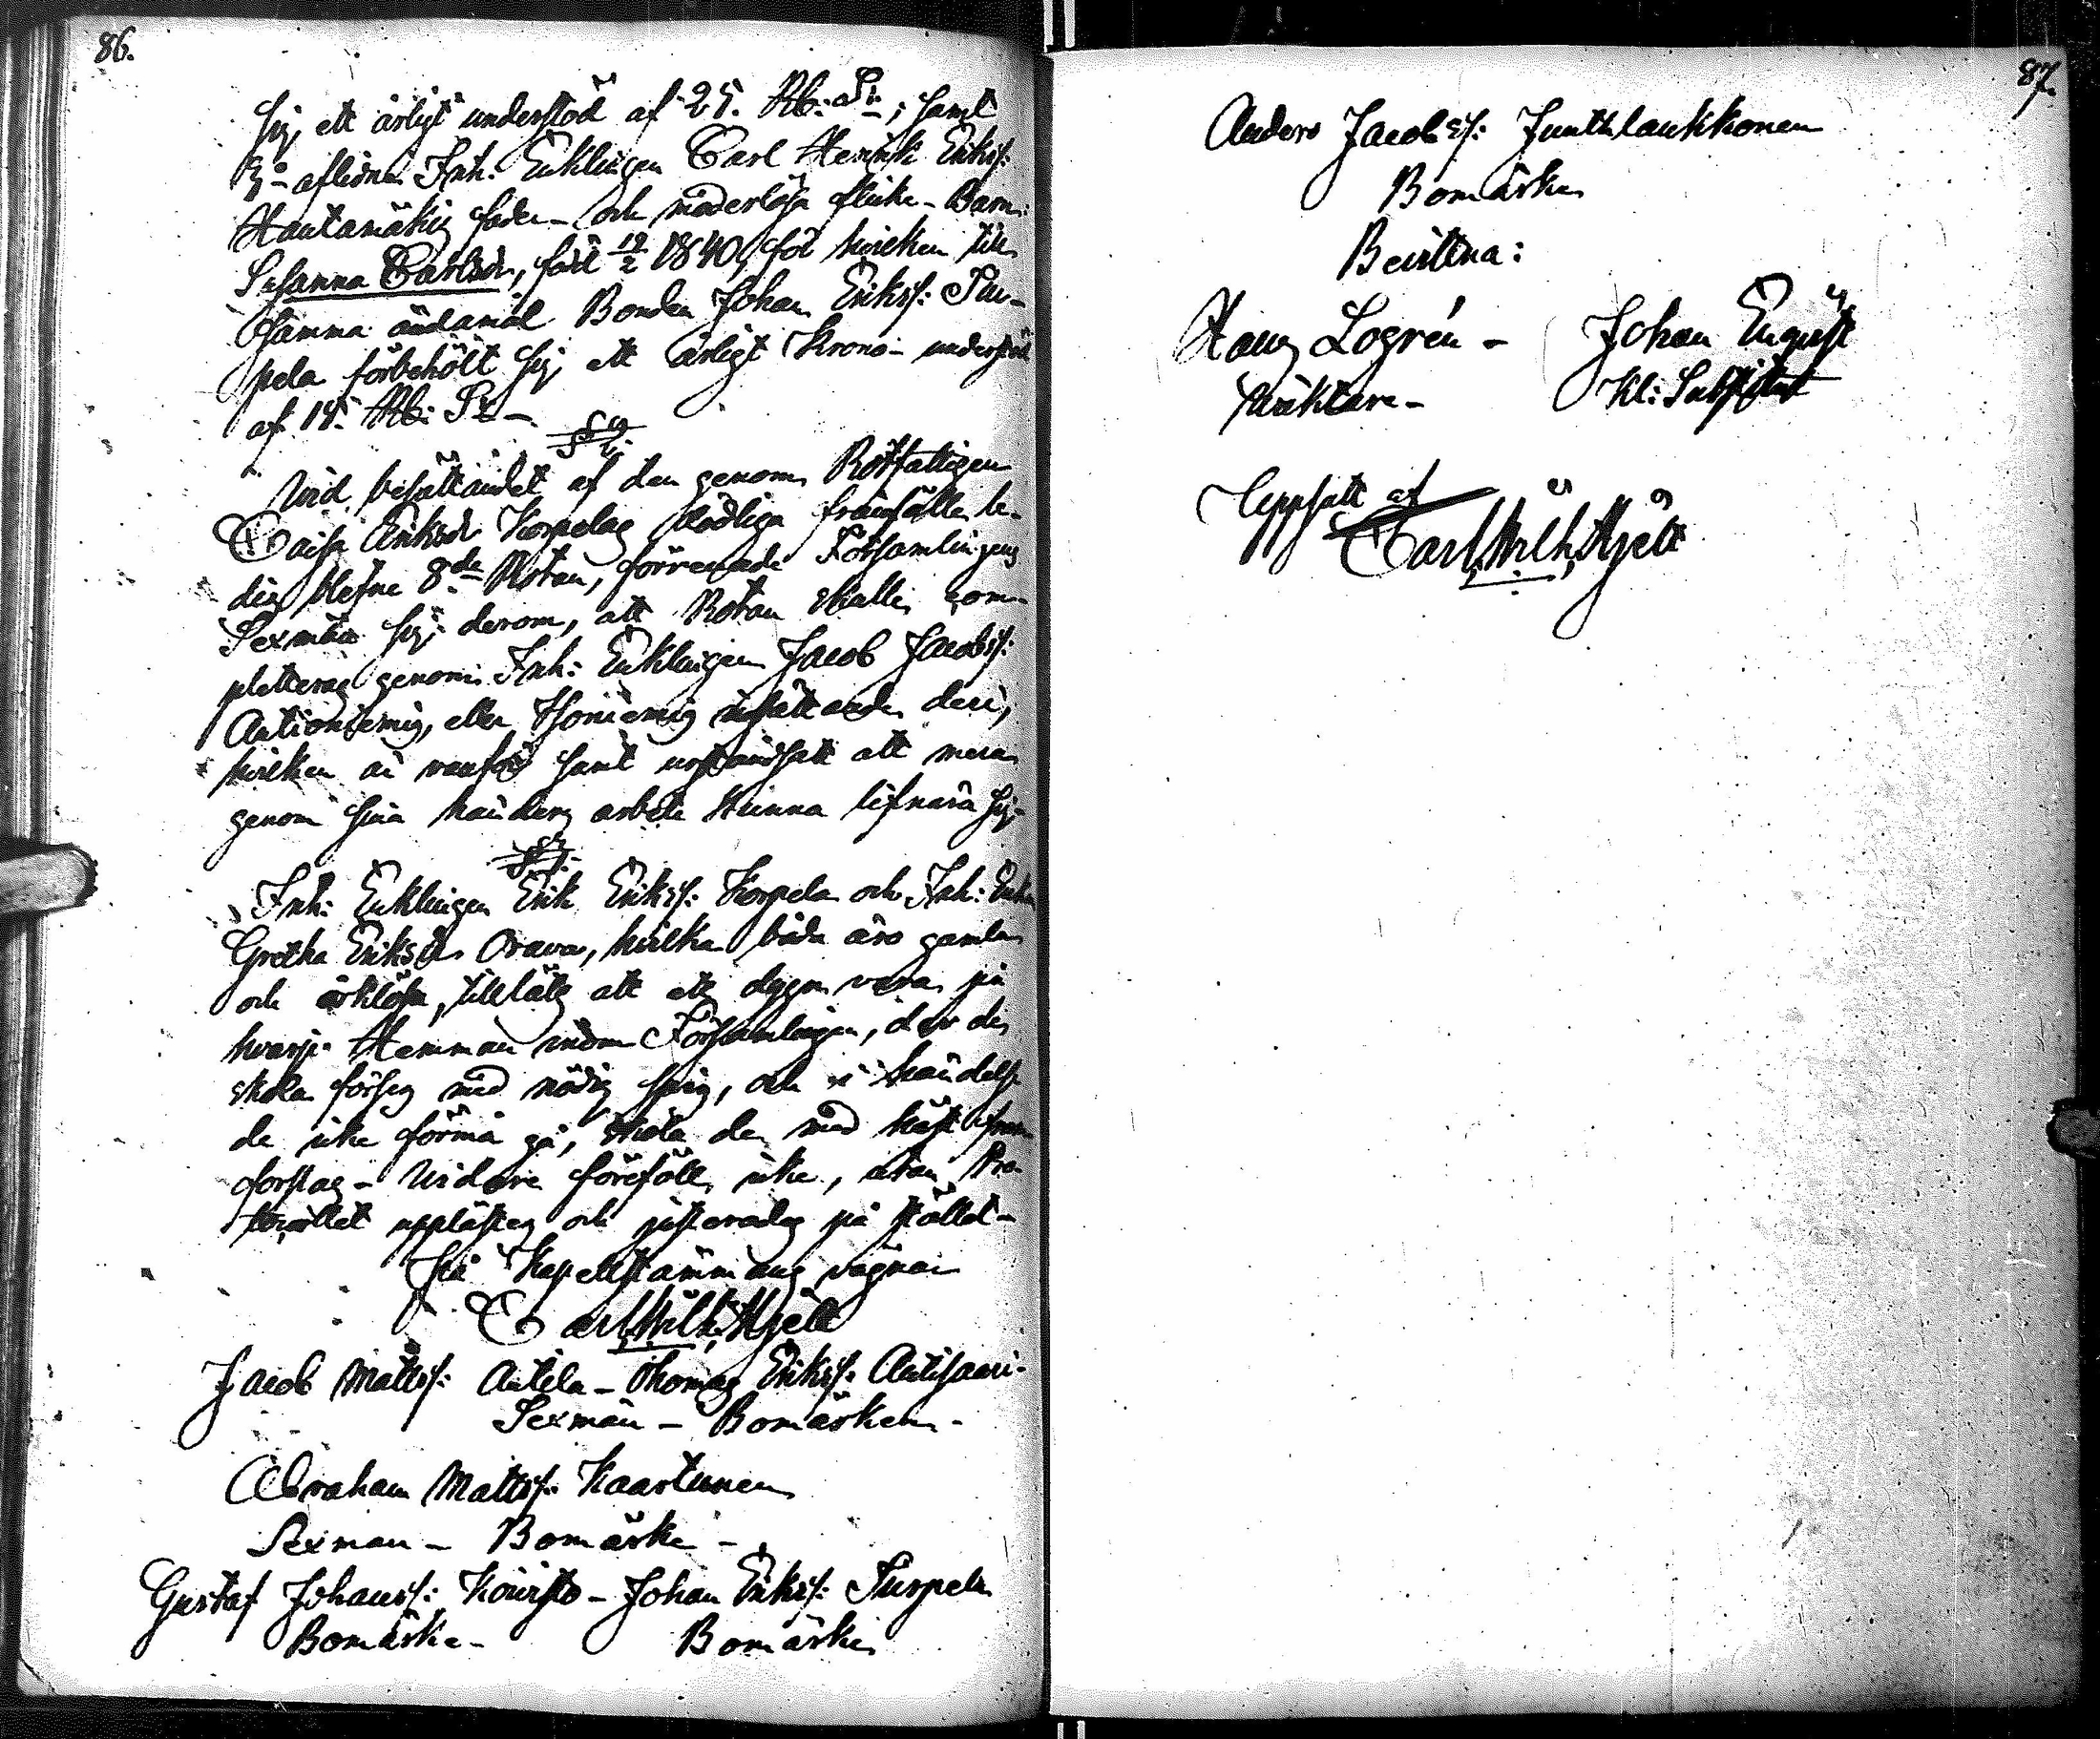 86.
sig ett årligt understöd af 25. Rb: Sr; samt
3:o aflidna Inh: Enklingen Carl Henrik Eriks:
Hautamäkis fader- och moderlösa flicke-Barn:
Susanna Carlsdr, född 19/2 1840, för hvilken till
samma ändamål Bonden Johan Eriks: Tur-
pela förbehölt sig ett årligt Krono-understöd
af 15. Rb: Sr-
§ 2.
Vid besättandet af den genom Rotfattigen
Caisa Eriksdr Korpelas dödliga frånfälle le-
dig blefne 8de Rotan, förrenade Församlingens
Sexmän sig derom, att Rotan skulle com-
pletteras genom Inh: Enklingen Jacob Jacobs:
Autioniemis, eller insättande deri,
hvilken är vanför samt urståndsatt att mera
genom sina händers arbete kunna lifnära sig-
§
Inh: Enklingen Erik Eriks: Korpela och Inh: Enkan
Gretha Eriksdr Orava, hvilka båda äro gamla
och orklösa, tilläts att ett dygn vara på
hvarje Hemman inom Församlingen, der de
skola förses med nödig spis, och i händelse
de icke förmå gå, skola de med häst
forslas- Vidare föreföll icke, utan Pro-
tocollet upplästes och justerades på stället-
På Kapellstämmans vägnar
Carl Wilh: Hjelt
Jacob Matts: Antila- Thomas Eriks: Autisaari-
Sexmän - Bomärken-
Abraham Matts: Kaartunen
Sexman- Bomärke-
Gustaf Johans: Koivisto- Johan Eriks: Turpela
Bomärke- Bomärke
87.
Anders Jacobs: Junttilankkonen
Bomärke
Bevittna:
Hans Logrén - Johan Engvist
Väktare- Kl: Substitut
Uppsatt af
Carl Wilh. Hjelt